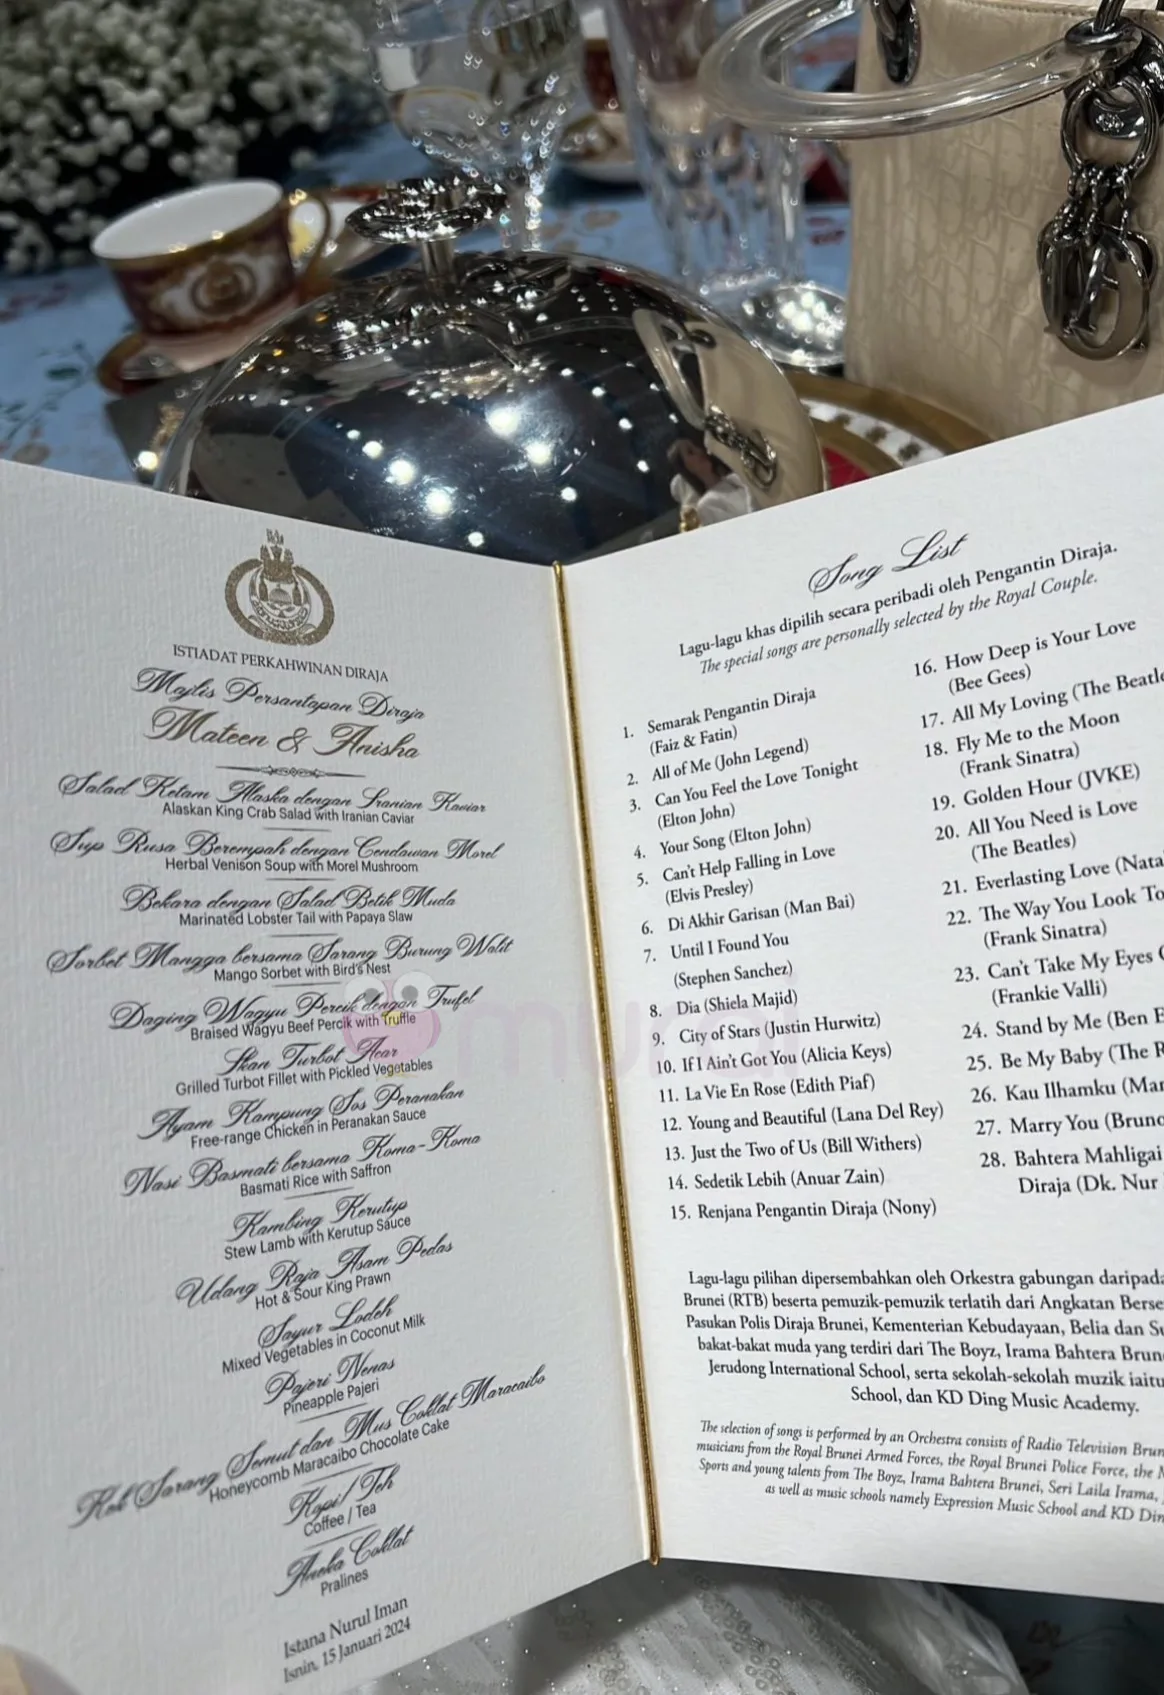 ISTIADAT PERKAHWINAN DIRAJA
Majlis Persantapan Diraja
Mateen & Anisha
Salad Ketam Alaska dengan Iranian Kaviar
Alaskan King Crab Salad with Iranian Caviar
Sup Rusa Berempah dengan Cendawan Morel
Herbal Venison Soup with Morel Mushroom
Bekara dengan Salad Betik Muda
Marinated Lobster Tail with Papaya Slaw
Sorbet Mangga bersama Sarang Burung Walit
Mango Sorbet with Bird's Nest
Daging Wagyu Percik dengan Trufel
Braised Wagyu Beef Percik with Truffle
Ikan Turbot Acar
Grilled Turbot Fillet with Pickled Vegetables
Ayam Kampung Sos Peranakan
Free-range Chicken in Peranakan Sauce
Nasi Basmati bersama Koma-Koma
Basmati Rice with Saffron
Kambing Kerutup
Stew Lamb with Kerutup Sauce
Udang Raja Asam Pedas
Hot & Sour King Prawn
Sayur Lodeh
Mixed Vegetables in Coconut Milk
Pajeri Nenas
Pineapple Pajeri
Kek Sarang Semut dan Mus Coklat Maracaibo
Honeycomb Maracaibo Chocolate Cake
Kopi / Teh
Coffee / Tea
Aneka Coklat
Pralines
Istana Nurul Iman
Isnin, 15 Januari 2024
Song List
Lagu-lagu khas dipilih secara peribadi oleh Pengantin Diraja.
The special songs are personally selected by the Royal Couple.
1. Semarak Pengantin Diraja
(Faiz & Fatin)
2. All of Me (John Legend)
3. Can You Feel the Love Tonight
(Elton John)
4. Your Song (Elton John)
5. Can't Help Falling in Love
(Elvis Presley)
6. Di Akhir Garisan (Man Bai)
7. Until I Found You
(Stephen Sanchez)
8. Dia (Shiela Majid)
9. City of Stars (Justin Hurwitz)
10. If I Ain't Got You (Alicia Keys)
11. La Vie En Rose (Edith Piaf)
12. Young and Beautiful (Lana Del Rey)
13. Just the Two of Us (Bill Withers)
14. Sedetik Lebih (Anuar Zain)
15. Renjana Pengantin Diraja (Nony)
16. How Deep is Your Love
(Bee Gees)
17. All My Loving (The Beatle
18. Fly Me to the Moon
(Frank Sinatra)
19. Golden Hour (JVKE)
20. All You Need is Love
(The Beatles)
21. Everlasting Love (Nata
22. The Way You Look To
(Frank Sinatra)
23. Can't Take My Eyes
(Frankie Valli)
24. Stand by Me (Ben E
25. Be My Baby (The R
26. Kau Ilhamku (Ma
27. Marry You (Bruno
28. Bahtera Mahligai
Diraja (Dk. Nur
Lagu-lagu pilihan dipersembahkan oleh Orkestra gabungan daripada
Brunei (RTB) beserta pemuzik-pemuzik terlatih dari Angkatan Berse
Pasukan Polis Diraja Brunei, Kementerian Kebudayaan, Belia dan Su
bakat-bakat muda yang terdiri dari The Boyz, Irama Bahtera Brun
Jerudong International School, serta sekolah-sekolah muzik iaitu
School, dan KD Ding Music Academy.
The selection of songs is performed by an Orchestra consists of Radio Television Brun
musicians from the Royal Brunei Armed Forces, the Royal Brunei Police Force, the M
Sports and young talents from The Boyz, Irama Bahtera Brunei, Seri Laila Irama,
as well as music schools namely Expression Music School and KD Din